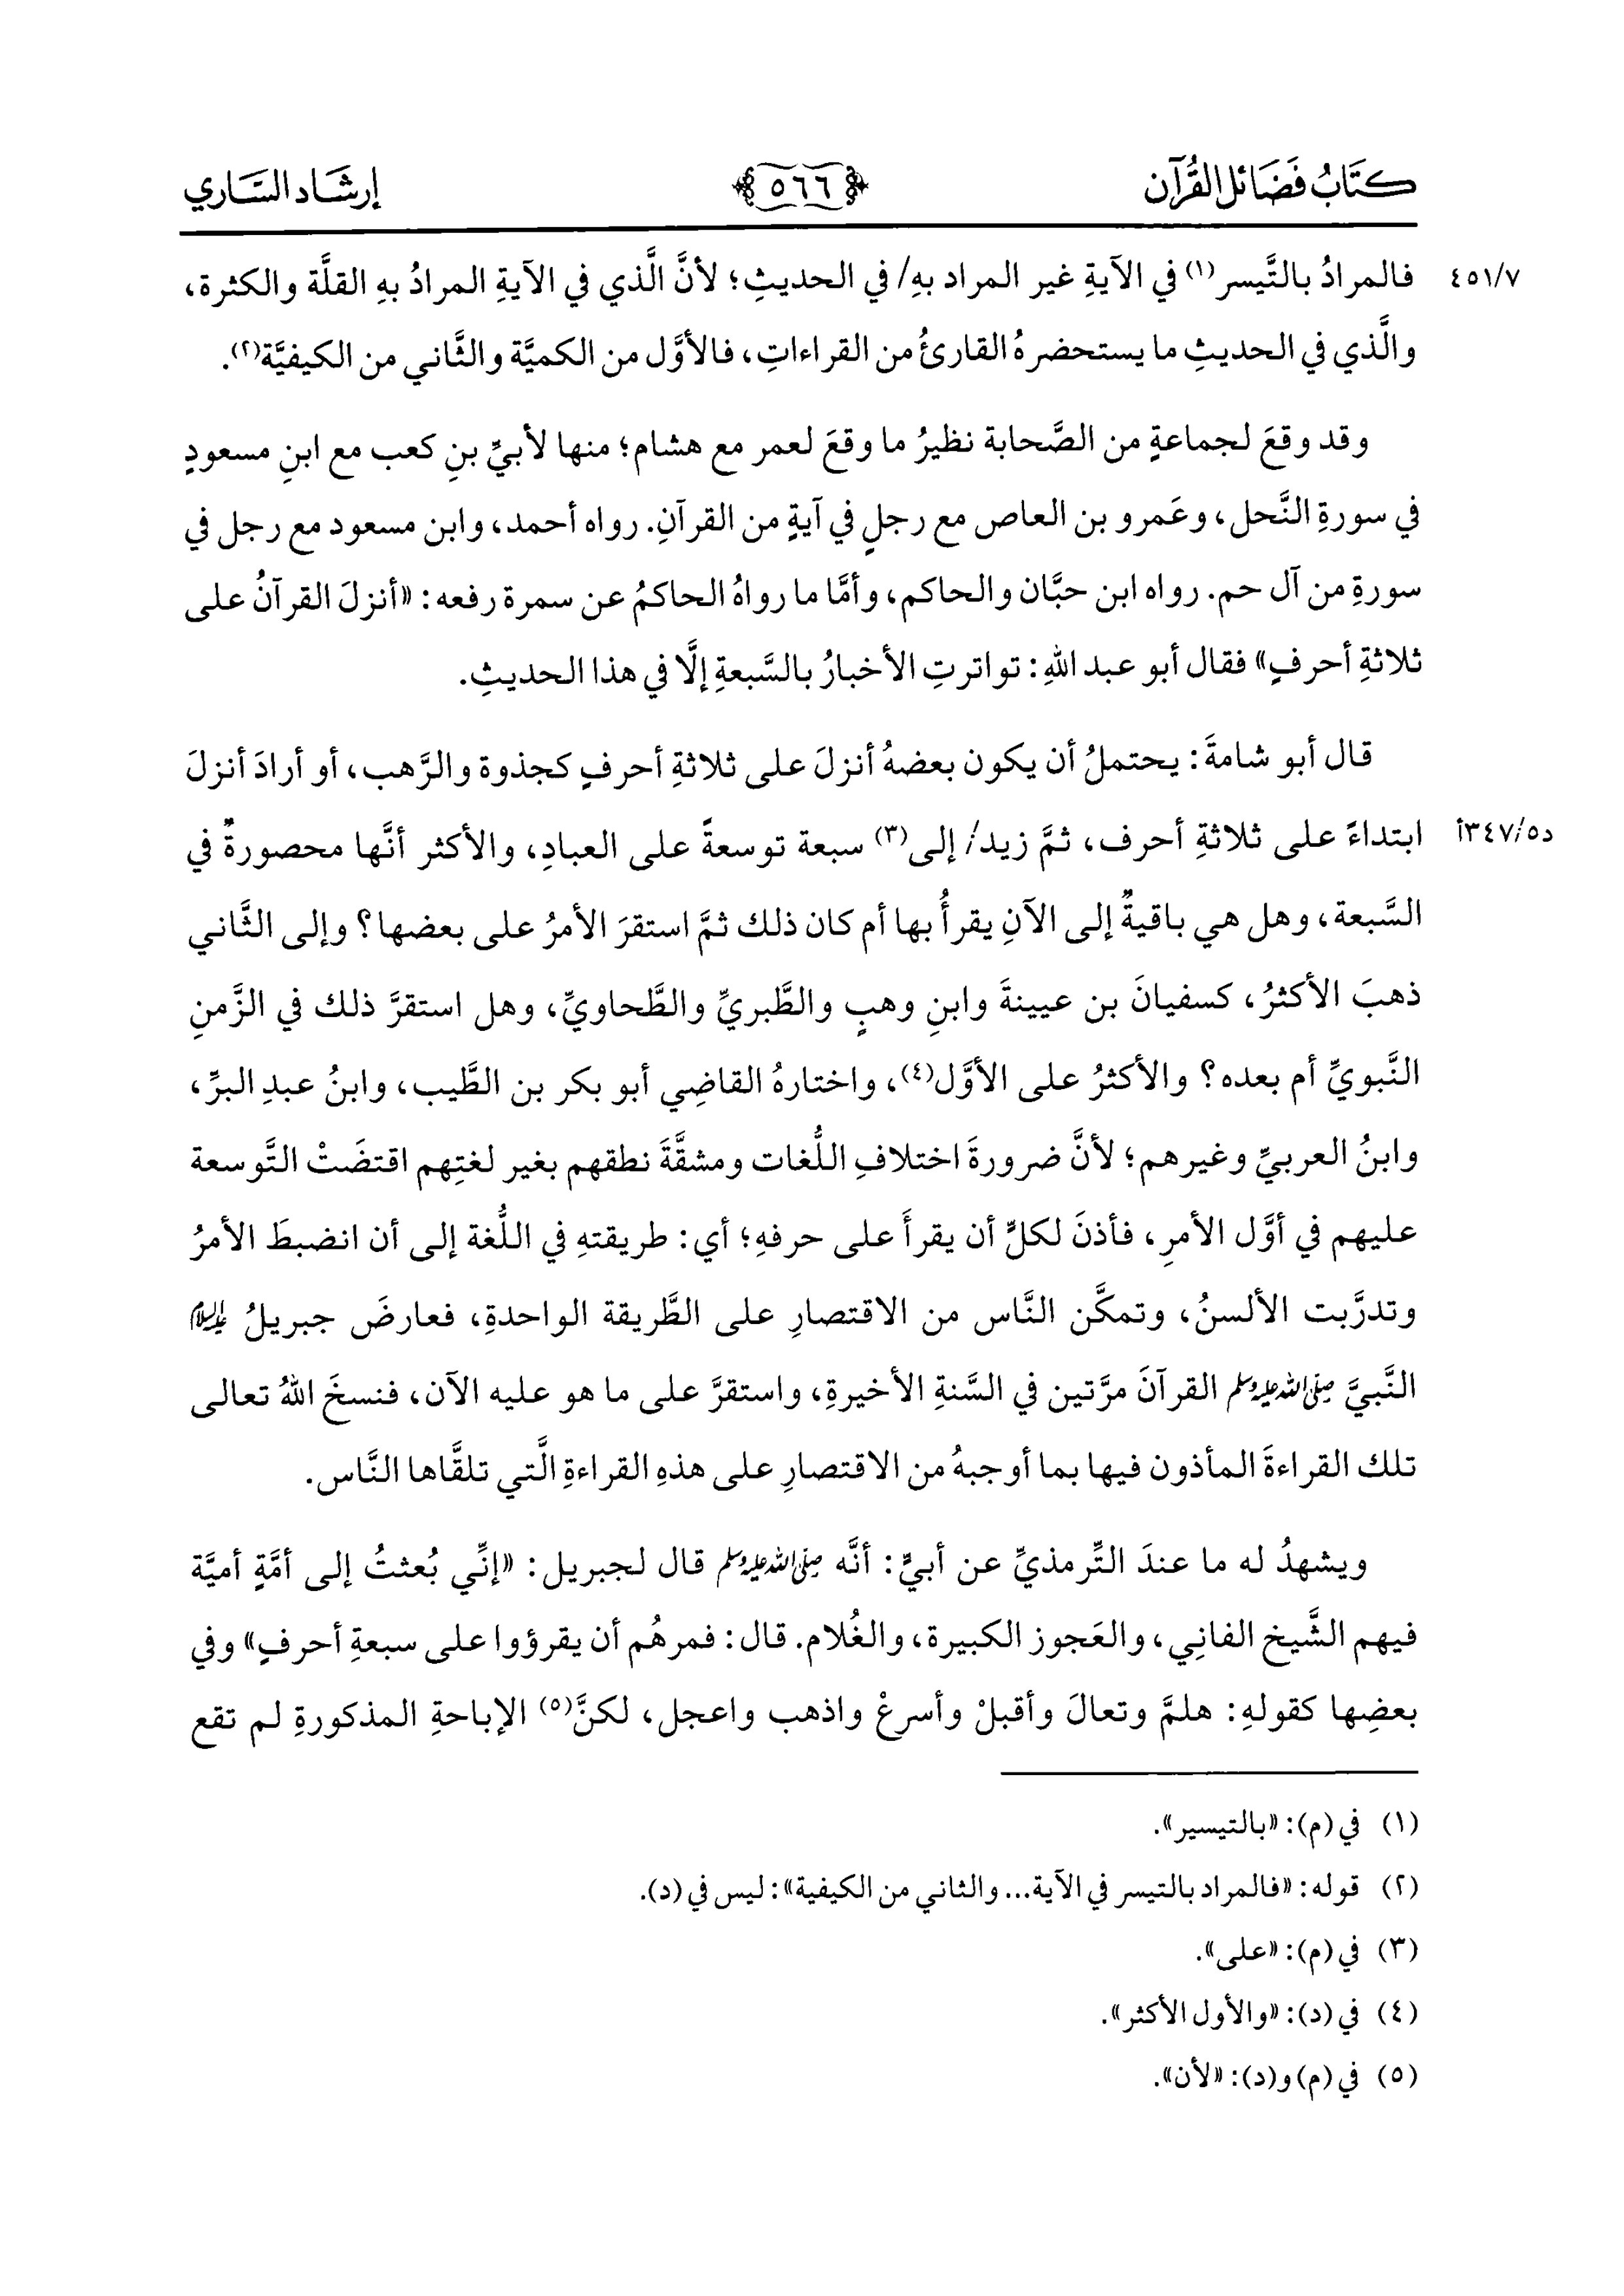 كتاب فضائل القرآن ٥٦٦ إرشاد الساري
٤٥١/٧ فالمرادُ بالتَّيسر(١) في الآيةِ غير المراد بهِ/ في الحديثِ؛ لأنَّ الَّذي في الآيةِ المرادُ بهِ القلَّة والكثرة،
والَّذي في الحديثِ ما يستحضرهُ القارئُ من القراءاتِ، فالأوَّل من الكميَّة والثَّاني من الكيفيَّة(٢).
وقد وقعَ لجماعةٍ من الصَّحابة نظيرُ ما وقعَ لعمر مع هشام؛ منها لأبيِّ بنِ كعب مع ابنِ مسعودٍ
في سورةِ النَّحل، وعَمرو بن العاص مع رجلٍ في آيةٍ من القرآنِ. رواه أحمد، وابن مسعود مع رجل في
سورةٍ من آل حم. رواه ابن حبَّان والحاكم، وأمَّا ما رواهُ الحاكمُ عن سمرة رفعه: «أنزلَ القرآنُ على
ثلاثةِ أحرفٍ» فقال أبو عبد اللهِ: تواترتِ الأخبارُ بالسَّبعةِ إلَّا في هذا الحديثِ.
قال أبو شامةَ: يحتملُ أن يكون بعضهُ أنزلَ على ثلاثةِ أحرفٍ كجذوة والرَّهب، أو أرادَ أنزلَ
د٣٤٧/٥أ ابتداءً على ثلاثةِ أحرف، ثمَّ زيد/ إلى(٣) سبعة توسعةً على العبادِ، والأكثر أنَّها محصورةٌ في
السَّبعة، وهل هي باقيةٌ إلى الآنِ يقرأُ بها أم كان ذلك ثمَّ استقرَ الأمرُ على بعضها؟ وإلى الثَّاني
ذهبَ الأكثرُ، كسفيانَ بن عيينةَ وابنِ وهبٍ والطَّبريِّ والطَّحاويِّ، وهل استقرَّ ذلك في الزَّمنِ
النَّبويِّ أم بعده؟ والأكثرُ على الأوَّل(٤)، واختارهُ القاضِي أبو بكر بن الطَّيب، وابنُ عبدِ البرِّ،
وابنُ العربيِّ وغيرهم؛ لأنَّ ضرورةَ اختلافِ اللُّغات ومشقَّةَ نطقهم بغير لغتِهم اقتضَتْ التَّوسعة
عليهم في أوَّل الأمرِ، فأذنَ لكلٍّ أن يقرأَ على حرفهِ؛ أي: طريقتهِ في اللُّغة إلى أن انضبطَ الأمرُ
وتدرَّبت الألسنُ، وتمكَّن النَّاس من الاقتصارِ على الطَّريقة الواحدةِ، فعارضَ جبريلُ عليه السلام
النَّبيَّ صلى الله عليه وسلم القرآنَ مرَّتين في السَّنةِ الأخيرةِ، واستقرَّ على ما هو عليه الآن، فنسخَ اللهُ تعالى
تلك القراءةَ المأذون فيها بما أوجبهُ من الاقتصارِ على هذهِ القراءةِ الَّتي تلقَّاها النَّاس.
ويشهدُ له ما عندَ التِّرمذيِّ عن أبيٍّ: أنَّه صلى الله عليه وسلم قال لجبريل: «إنِّي بُعثتُ إلى أمَّةٍ أميَّة
فيهم الشَّيخ الفانِي، والعَجوز الكبيرة، والغُلام. قال: فمرهُم أن يقرؤوا على سبعةِ أحرفٍ» وفي
بعضِها كقولهِ: هلمَّ وتعالَ وأقبلْ وأسرعْ واذهب واعجل، لكنَّ(٥) الإباحةِ المذكورةِ لم تقع
(١) في (م): «بالتيسير».
(٢) قوله: «فالمراد بالتيسر في الآية... والثاني من الكيفية»: ليس في (د).
(٣) في (م): «على».
(٤) في (د): «والأول الأكثر».
(٥) في (م) و(د): «لأن».